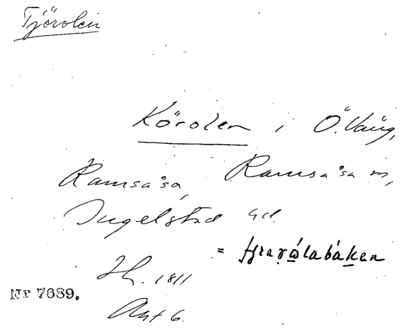 Tjörolen
Körolen i Ö. Vång,
Ramsåsa, Ramsåsa sn,
Ingelstad hd.
= tjɶrọ́labàkan
Jh. 1811
Nr 7689.
Akt 6.